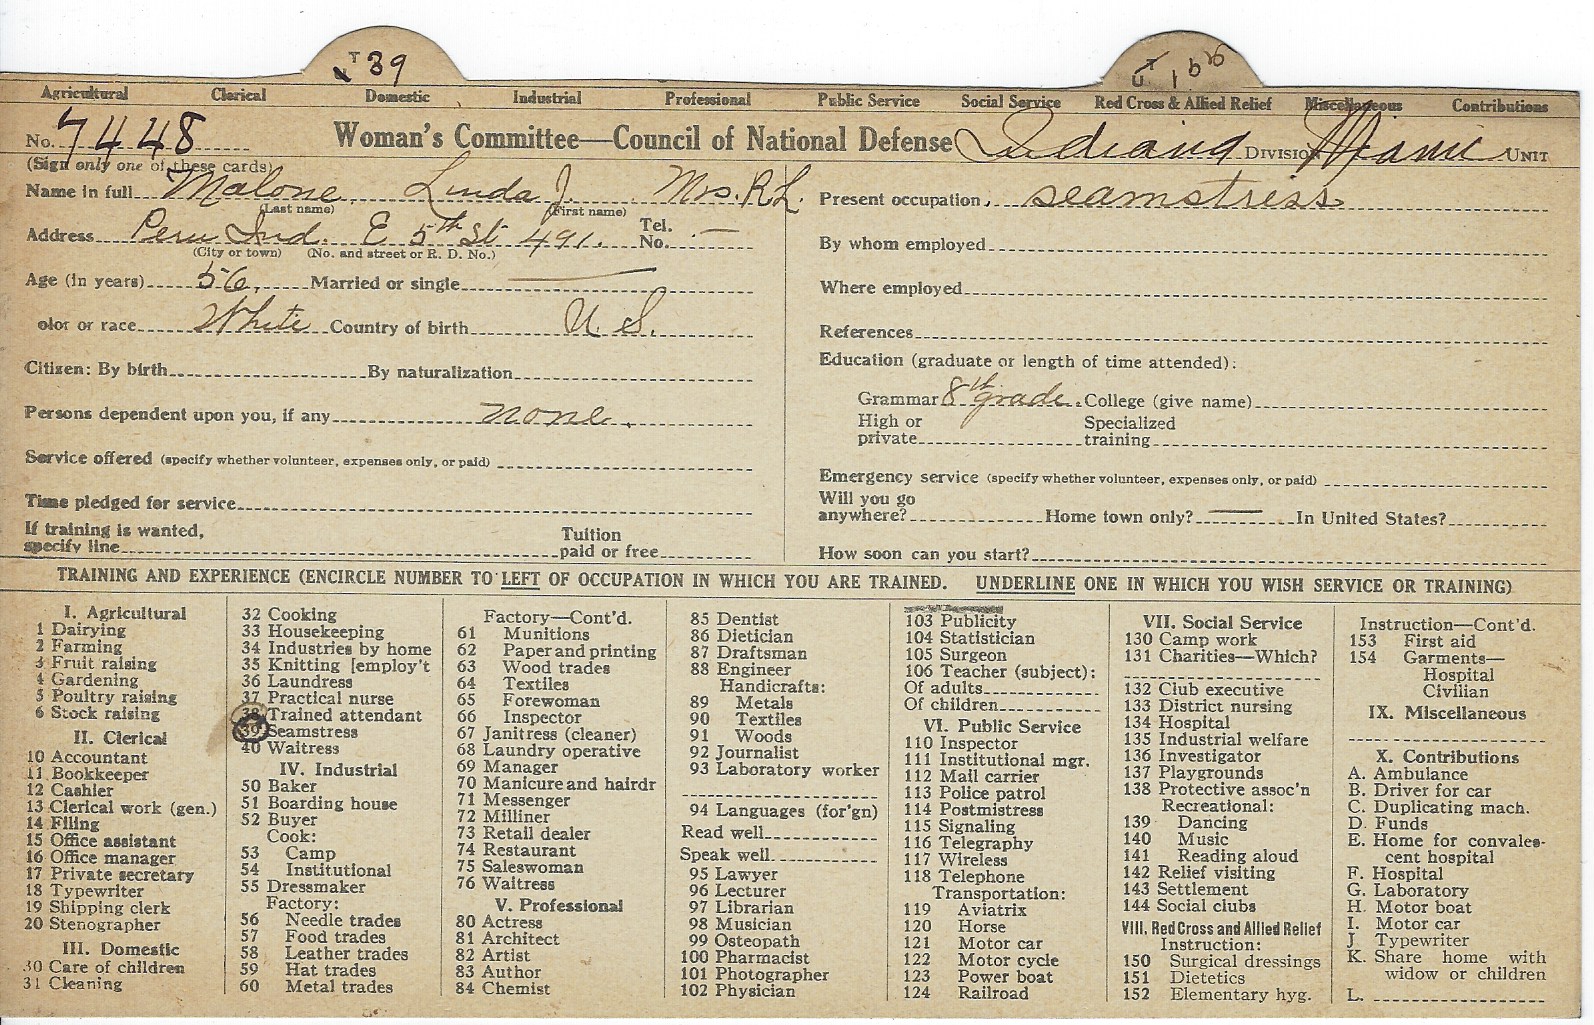 T 39
U T 155
Agricultural Clerical Domestic Industrial Professional Public Service Social Service Red Cross & Allied Relief Miscellaneous Contributions
No. 7448 Woman's Committee—Council of National Defense Indiana DIVISION Miami UNIT
(Sign only one of these cards)
Name in full Malone, Linda J. Mrs. R. L.
(Last name) (First name)
Address Peru Ind. E 5th St 491. Tel. No. —
(City or town) (No. and street or R. D. No.)
Age (in years) 56, Married or single —
olor or race White Country of birth U. S.
Citizen: By birth By naturalization
Persons dependent upon you, if any none.
Service offered (specify whether volunteer, expenses only, or paid)
Time pledged for service
If training is wanted,
specify line Tuition paid or free
Present occupation. seamstress
By whom employed
Where employed
References
Education (graduate or length of time attended):
Grammar 8th grade. College (give name)
High or private Specialized training
Emergency service (specify whether volunteer, expenses only, or paid)
Will you go
anywhere? Home town only? — In United States?
How soon can you start?
TRAINING AND EXPERIENCE (ENCIRCLE NUMBER TO LEFT OF OCCUPATION IN WHICH YOU ARE TRAINED. UNDERLINE ONE IN WHICH YOU WISH SERVICE OR TRAINING)
I. Agricultural
1 Dairying
2 Farming
3 Fruit raising
4 Gardening
5 Poultry raising
6 Stock raising
II. Clerical
10 Accountant
11 Bookkeeper
12 Cashier
13 Clerical work (gen.)
14 Filing
15 Office assistant
16 Office manager
17 Private secretary
18 Typewriter
19 Shipping clerk
20 Stenographer
III. Domestic
30 Care of children
31 Cleaning
32 Cooking
33 Housekeeping
34 Industries by home
35 Knitting [employ't
36 Laundress
37 Practical nurse
38 Trained attendant
39 Seamstress
40 Waitress
IV. Industrial
50 Baker
51 Boarding house
52 Buyer
Cook:
53 Camp
54 Institutional
55 Dressmaker
Factory:
56 Needle trades
57 Food trades
58 Leather trades
59 Hat trades
60 Metal trades
Factory—Cont'd.
61 Munitions
62 Paper and printing
63 Wood trades
64 Textiles
65 Forewoman
66 Inspector
67 Janitress (cleaner)
68 Laundry operative
69 Manager
70 Manicure and hairdr
71 Messenger
72 Milliner
73 Retail dealer
74 Restaurant
75 Saleswoman
76 Waitress
V. Professional
80 Actress
81 Architect
82 Artist
83 Author
84 Chemist
85 Dentist
86 Dietician
87 Draftsman
88 Engineer
Handicrafts:
89 Metals
90 Textiles
91 Woods
92 Journalist
93 Laboratory worker
94 Languages (for'gn)
Read well
Speak well
95 Lawyer
96 Lecturer
97 Librarian
98 Musician
99 Osteopath
100 Pharmacist
101 Photographer
102 Physician
103 Publicity
104 Statistician
105 Surgeon
106 Teacher (subject):
Of adults
Of children
VI. Public Service
110 Inspector
111 Institutional mgr.
112 Mail carrier
113 Police patrol
114 Postmistress
115 Signaling
116 Telegraphy
117 Wireless
118 Telephone
Transportation:
119 Aviatrix
120 Horse
121 Motor car
122 Motor cycle
123 Power boat
124 Railroad
VII. Social Service
130 Camp work
131 Charities—Which?
132 Club executive
133 District nursing
134 Hospital
135 Industrial welfare
136 Investigator
137 Playgrounds
138 Protective assoc'n
Recreational:
139 Dancing
140 Music
141 Reading aloud
142 Relief visiting
143 Settlement
144 Social clubs
VIII. Red Cross and Allied Relief
Instruction:
150 Surgical dressings
151 Dietetics
152 Elementary hyg.
Instruction—Cont'd.
153 First aid
154 Garments—
Hospital
Civilian
IX. Miscellaneous
X. Contributions
A. Ambulance
B. Driver for car
C. Duplicating mach.
D. Funds
E. Home for convales-
cent hospital
F. Hospital
G. Laboratory
H. Motor boat
I. Motor car
J Typewriter
K. Share home with
widow or children
L.